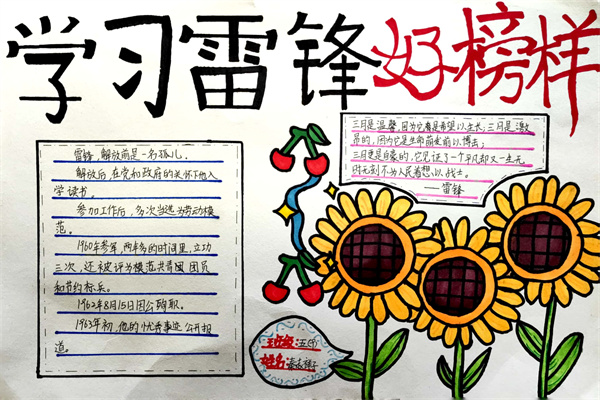 学习雷锋好榜样
雷锋,解放前是一名孤儿。
解放后,在党和政府的关怀下他入
学读书。
参加工作后,多次当选为劳动模
范。
1960年参军,两年多的时间里,立功
三次,还被评为模范共青团 团员
和节约标兵。
1962年8月15日因公殉职。
1963年初,他的优秀事迹公开报
道。
三月是温馨,因为它有是希望以生长;三月是激
昂的,因为它是生命萌发前以搏击;
三月更是自豪的,它见证了一个平凡却又一生无
时无刻不为人民着想以战士。
——雷锋
班级:五(1)
姓名: